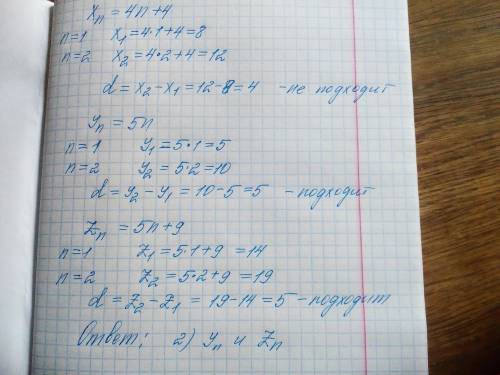 xₙ = 4n+4
n=1 x₁ = 4·1+4=8
n=2 x₂ = 4·2+4=12
d = x₂ - x₁ = 12-8=4 - не подходит
yₙ = 5n
n=1 y₁ = 5·1=5
n=2 y₂ = 5·2=10
d = y₂ - y₁ = 10-5=5 - подходит
zₙ = 5n+9
n=1 z₁ = 5·1+9=14
n=2 z₂ = 5·2+9=19
d = z₂ - z₁ = 19-14=5 - подходит
Ответ: 2) yₙ и zₙ